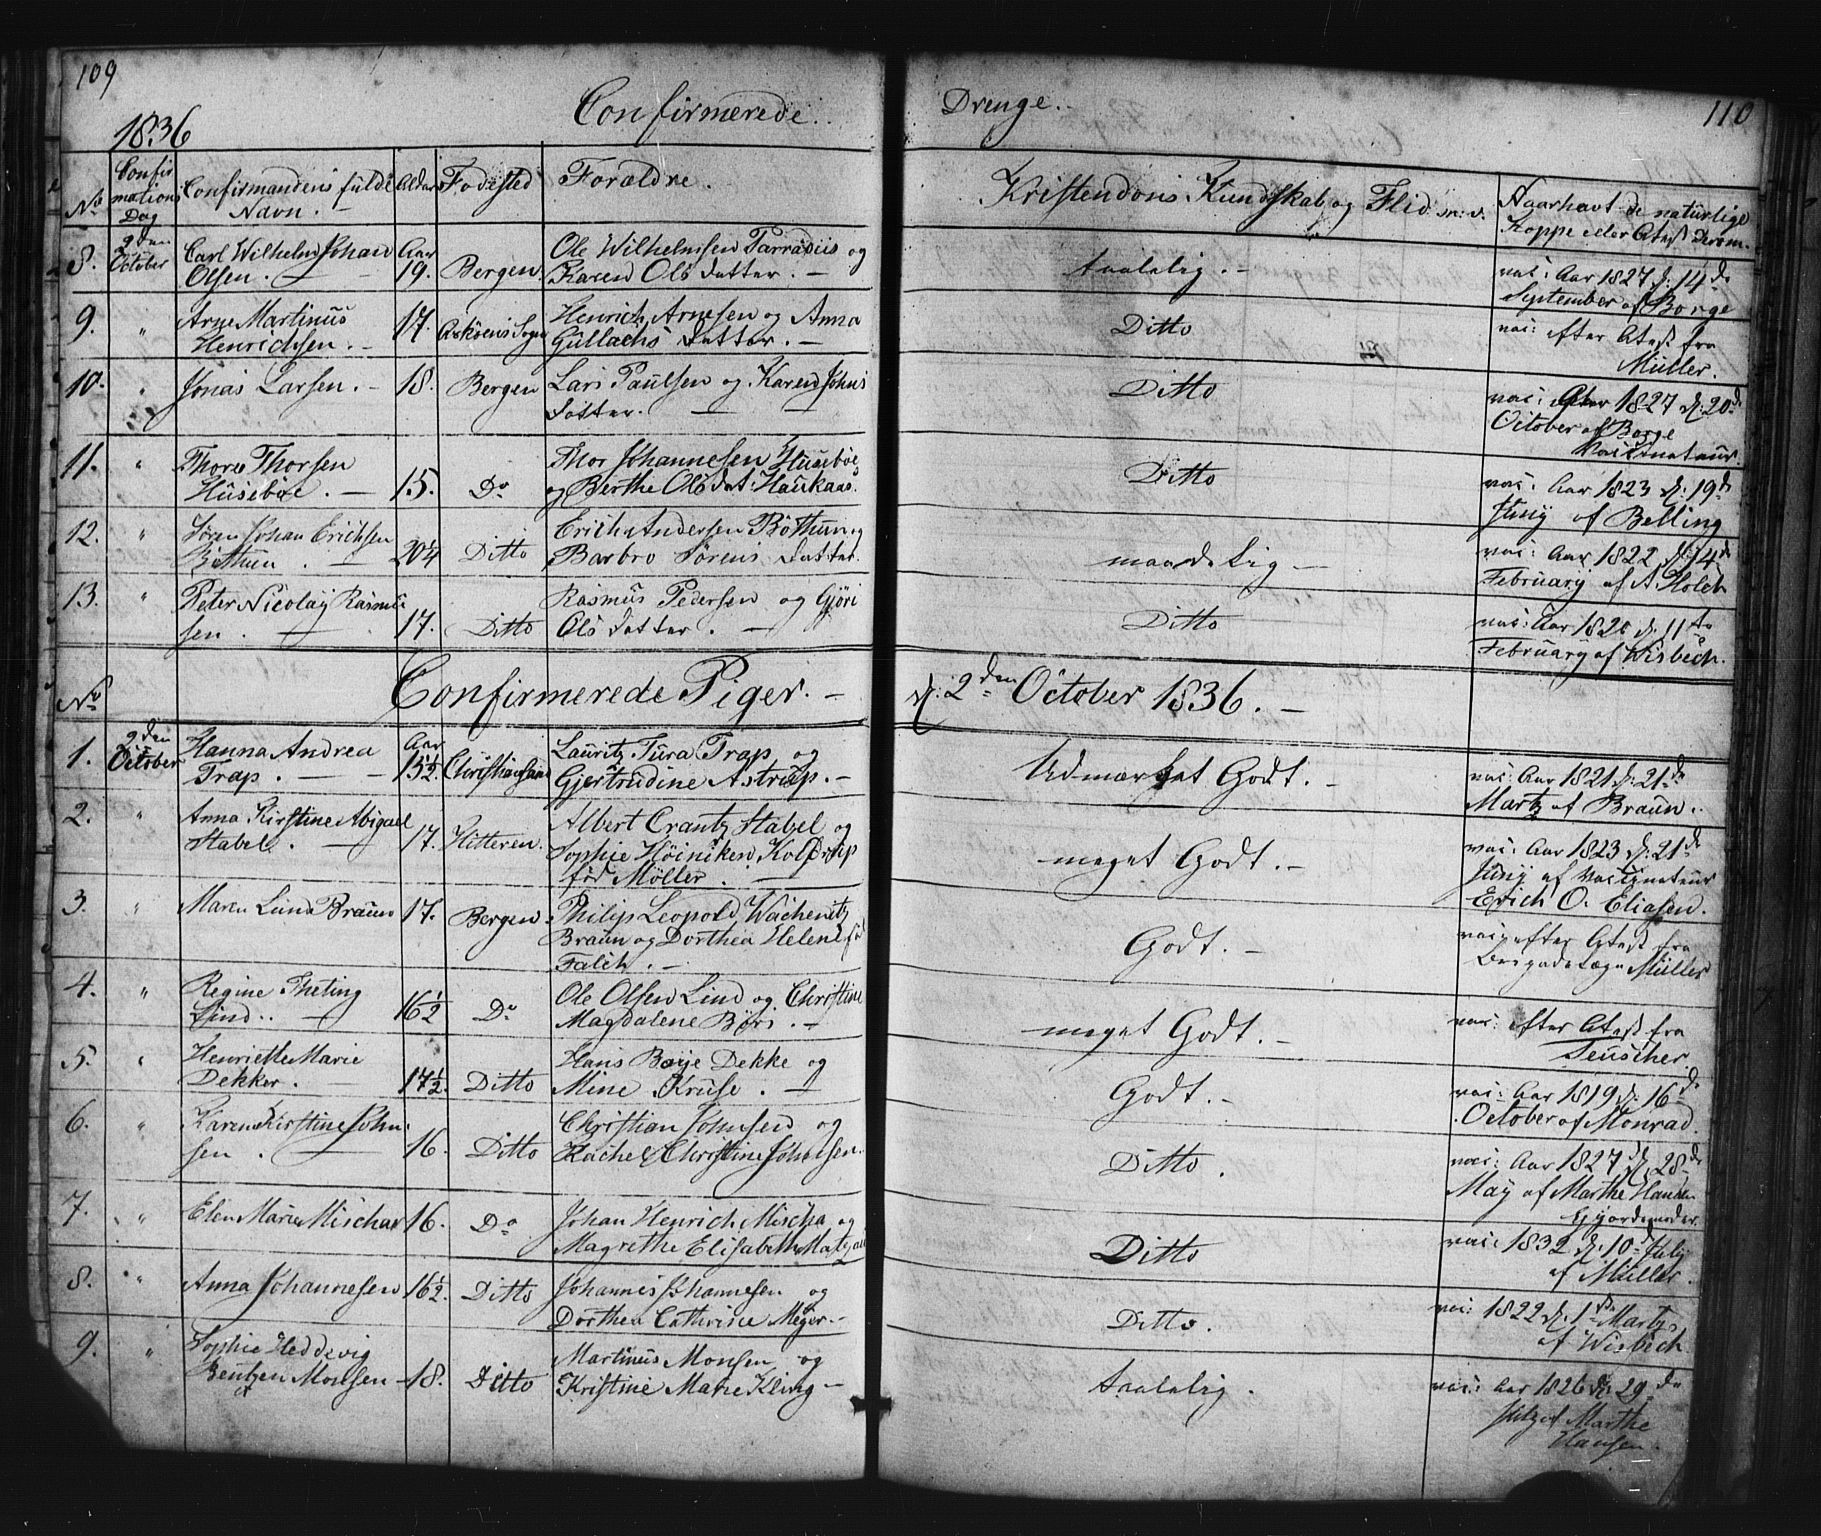 109
1836
Confirmerede
Drenge.
110
No
Confirmations Dag
Confirmandens fulde Navn.
Alder
Fødested
Forældre.
Kristendoms Kundskab og Flid m. v.
Aar havt de naturlige Kopper eller Atest derom
8.
2den October
Carl Wilhelm Johan
Olsen. —
Aar
19.
Bergen
Ole Wilhelmsen og
Karen Ols Datter. —
taalelig. —
vac: Aar 1827 d: 14de
September af Borge
9.
"
Arne Martinus
Henrichsen. —
17.
Askøens Sogn
Henrich Arnesen og Anna
Gullachs Datter. —
Ditto
vac: efter Atest fra
Müller.
10.
"
Jonas Larsen. —
18.
Bergen
Lars Paulsen og Karen Johns
Datter. —
Ditto
vac: Aar 1827 d: 20de
October af Borge
Vaccinateur.
11.
"
Thore Thorsen
Husebøe. —
15.
Do
Thor Johannesen Husebøe
og Berthe Ols Dat: Haukaas.
Ditto
vac: Aar 1823 d: 19de
Juny af Belling
12.
"
Søren Johan Erichsen
Böthun. —
20¼
Ditto
Erich Andersen Böthun og
Barbro Sörens Datter.
maadelig —
vac: Aar 1822 d: 14de
February af A. Holck
13.
"
Peter Nicolay Rasmus
sen. —
17.
Ditto
Rasmus Pedersen og Gjöri
Ols Datter. —
Ditto
vac: Aar 1826 d: 11te
February af Wisbech.
No
Confirmerede Piger. —
d: 2den October 1836. —
1.
2den October
Hanna Andrea
Trap. —
Aar
15½
Christiansand
Lauritz Tura Trap og
Gjertrudine Astrup. —
Udmærket Godt. —
vac: Aar 1821 d: 21de
Martz af Braun.
2.
"
Anna Kirstine Abigael
Stabel. —
17.
Hitteren.
Albert Crantz Stabel og
Sophie Höiniken Kolderup
fød Møller. —
meget Godt. —
vac: Aar 1823 d: 21de
Juny af Vaccinateur
Erich O. Eliasen.
3.
"
Maren Lund Braun
17.
Bergen
Philip Leopold Wachenitz
Braun og Dorthea Helene fød
Falch. —
Godt. —
vac: efter Atest fra
Brigadelæge Müller
4.
"
Regine Theting
Lind. —
16½
Do
Ole Olsen Lind og Christine
Magdalene Börs. —
meget Godt. —
vac: efter Atest fra
Teuscher.
5.
"
Henriette Marie
Dekker. —
17½
Ditto
Hans Boye Dekke og
Mine Kruse. —
Godt. —
vac: Aar 1819 d: 16de
October af Monrad.
6.
"
Karen Kirstine John
sen. —
16.
Ditto
Christian Johnsen og
Rachel Christine Joholsen.
Ditto.
vac: Aar 1827 d: 28de
May af Marthe Hansen
Gjordemoder.
7.
"
Elen Marie Mischa
16.
Do
Johan Henrich Mischa og
Magrethe Elisabeth
Ditto
vac: 1832 d: 10de July
af Müller.
8.
"
Anna Johannesen
16½
Ditto
Johannes Johannesen og
Dorthea Cathrine Meyer. —
Ditto.
vac: 1822 d: 1de Martz
af Wisbech
9.
"
Sophie Heddevig
Bentzen Monsen —
18.
Ditto
Martinus Monsen og
Kristine Marie Kling —
taalelig.
vac: Aar 1826 d: 29de
July af Marthe
Hansen.